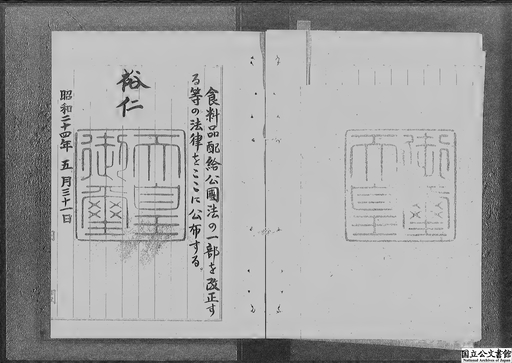 食料品配給公團法の一部を改正す
る等の法律をここに公布する。
裕仁
天皇
御璽
昭和二十四年五月三十一日
国立公文書館
National Archives of Japan